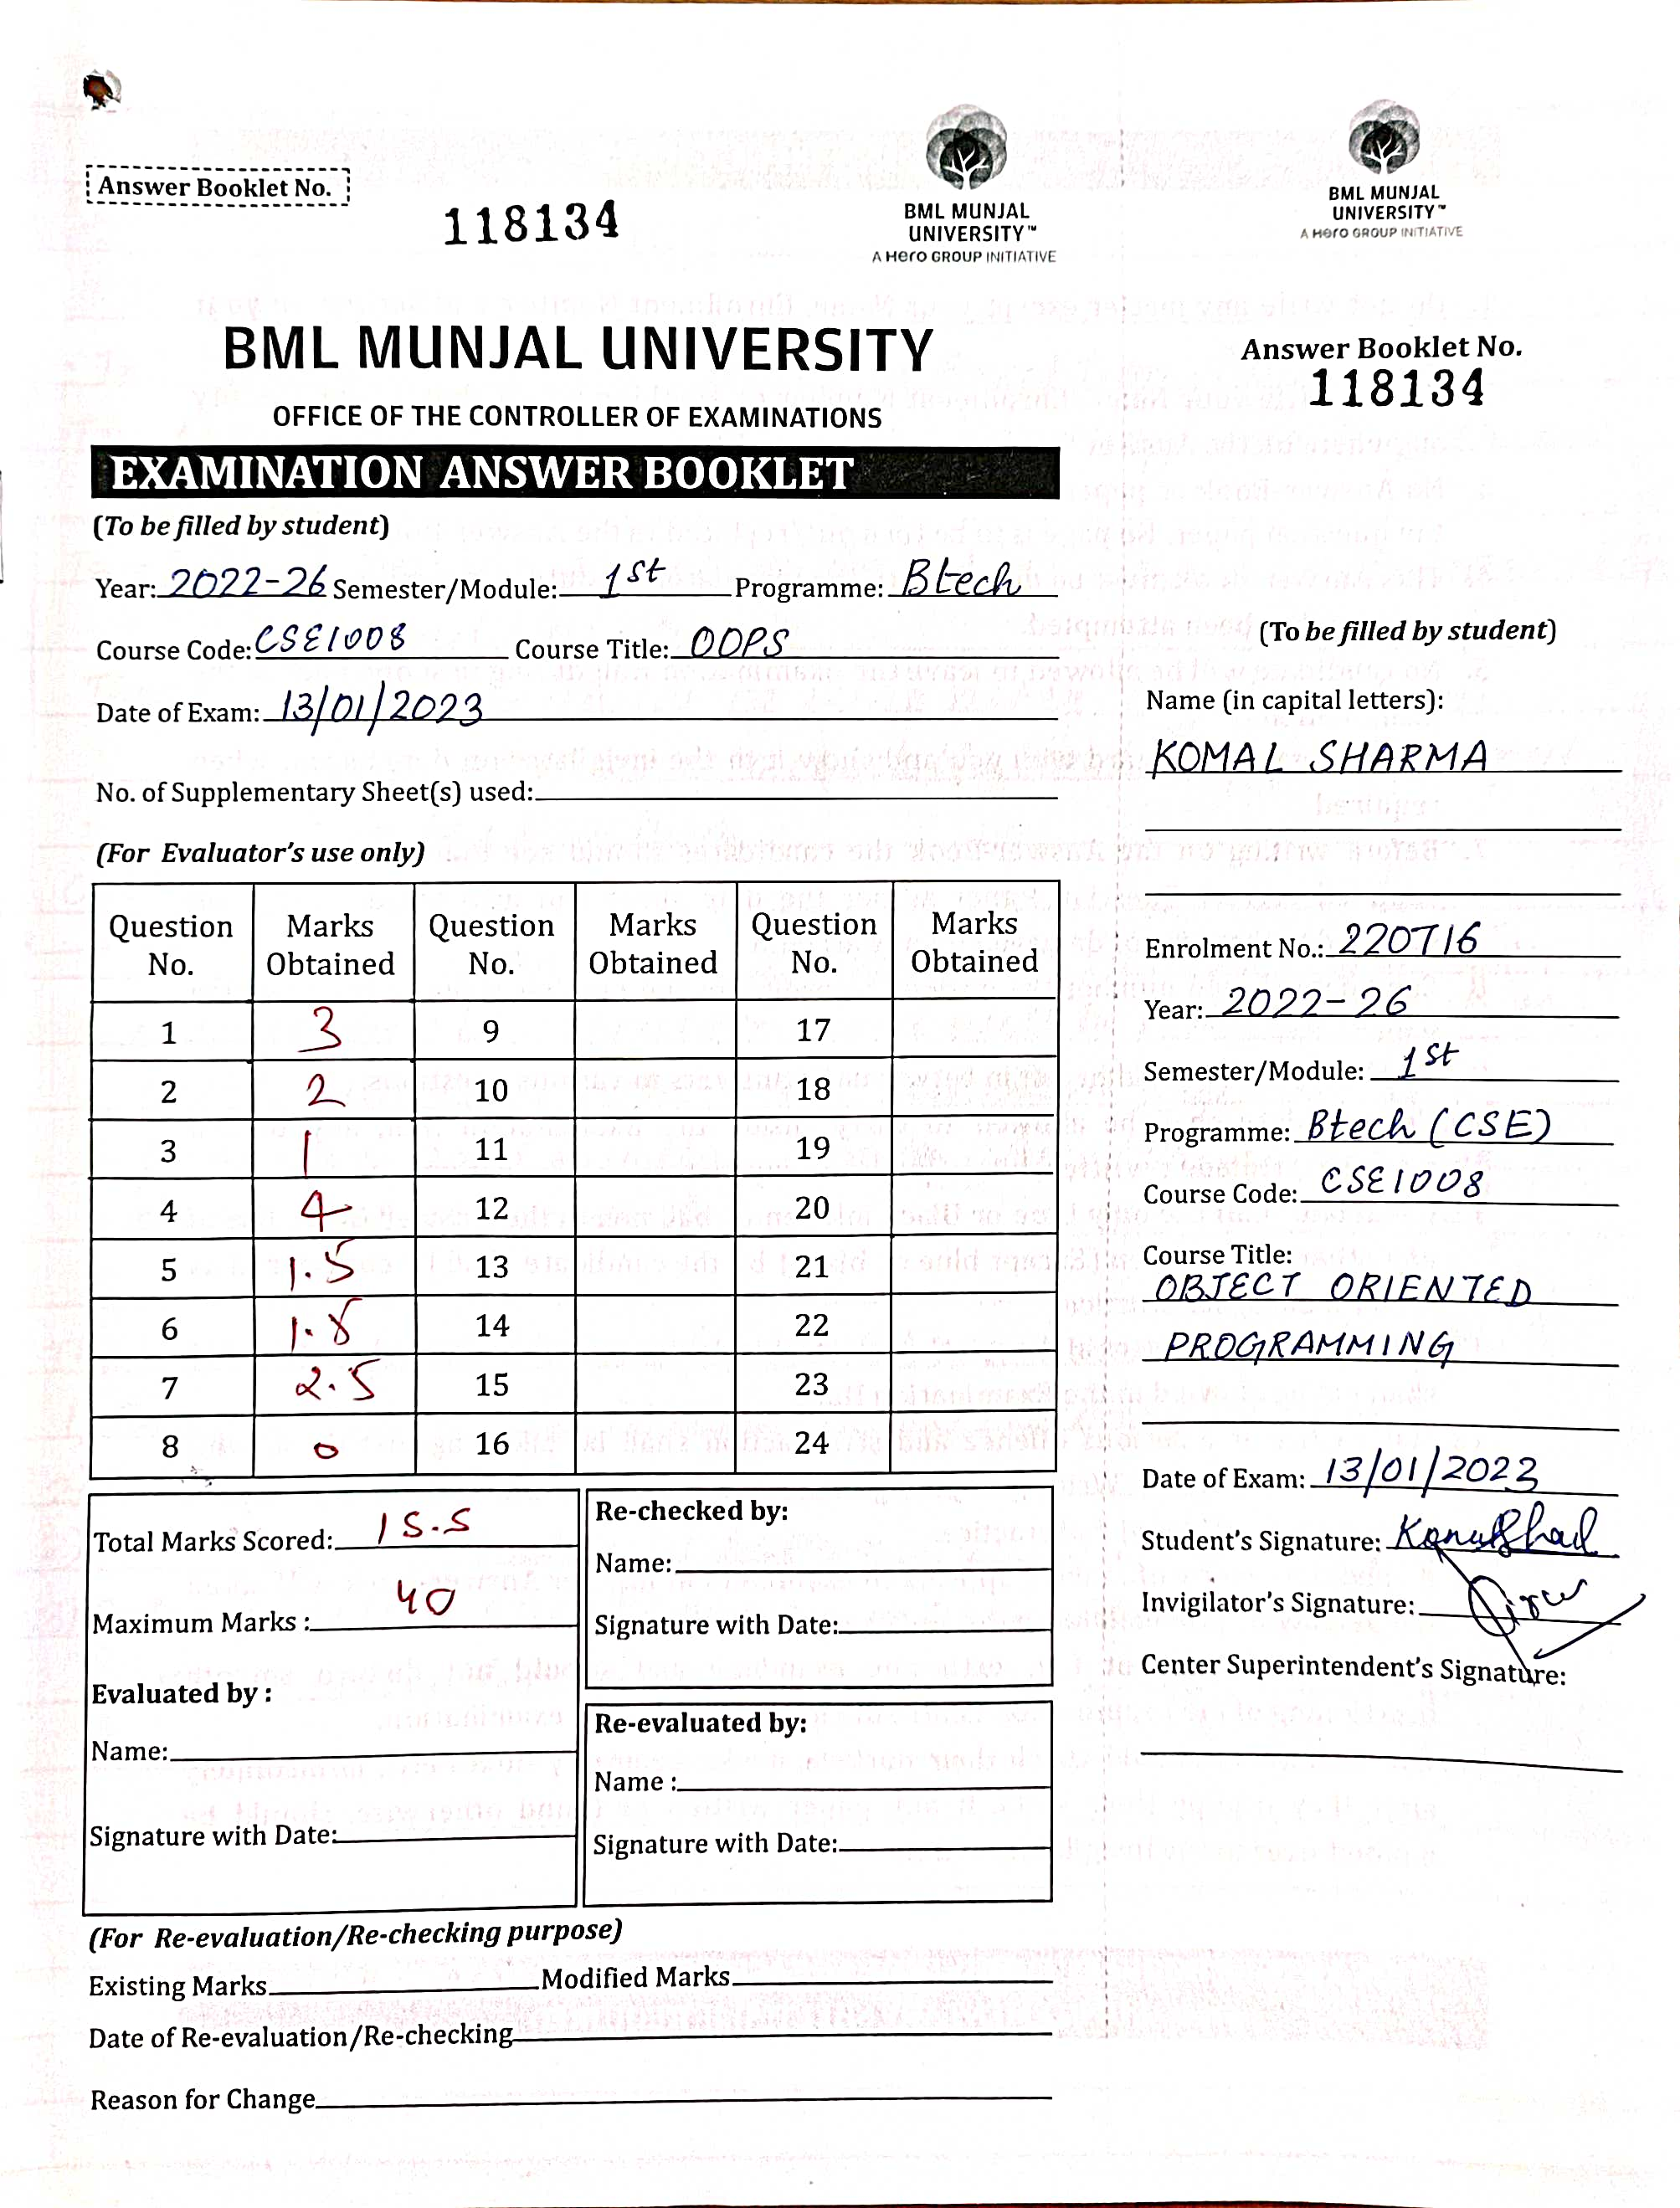 Answer Booklet No.
118134
BML MUNJAL
UNIVERSITY™
A Hero GROUP INITIATIVE
BML MUNJAL UNIVERSITY
OFFICE OF THE CONTROLLER OF EXAMINATIONS
EXAMINATION ANSWER BOOKLET
(To be filled by student)
Year: 2022-26 Semester/Module: 1st Programme: Btech
Course Code: CSE1008 Course Title: OOPS
Date of Exam: 13/01/2023
No. of Supplementary Sheet(s) used:
(For Evaluator's use only)
Question No. Marks Obtained Question No. Marks Obtained Question No. Marks Obtained
1 3 9 17
2 2 10 18
3 1 11 19
4 4 12 20
5 1.5 13 21
6 1.5 14 22
7 2.5 15 23
8 0 16 24
Total Marks Scored: 15.5
Maximum Marks : 40
Evaluated by :
Name:
Signature with Date:
Re-checked by:
Name:
Signature with Date:
Re-evaluated by:
Name :
Signature with Date:
(For Re-evaluation/Re-checking purpose)
Existing Marks Modified Marks
Date of Re-evaluation/Re-checking
Reason for Change
BML MUNJAL
UNIVERSITY™
A Hero GROUP INITIATIVE
Answer Booklet No.
118134
(To be filled by student)
Name (in capital letters):
KOMAL SHARMA
Enrolment No.: 220716
Year: 2022-26
Semester/Module: 1st
Programme: Btech (CSE)
Course Code: CSE1008
Course Title:
OBJECT ORIENTED
PROGRAMMING
Date of Exam: 13/01/2023
Student's Signature:
Invigilator's Signature:
Center Superintendent's Signature: